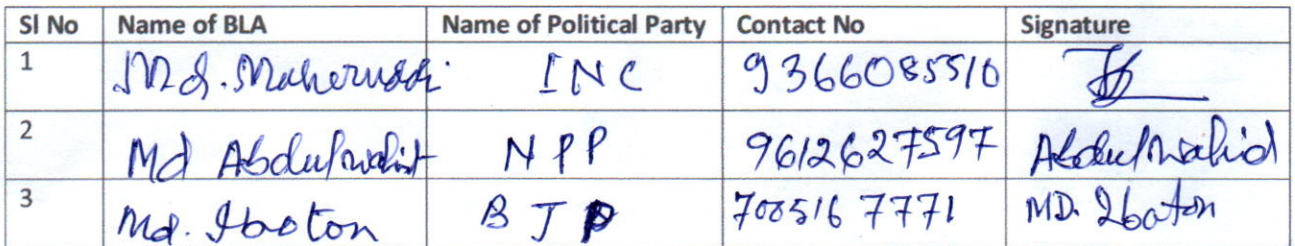 Sl No Name of BLA Name of Political Party Contact No Signature
1 Md. Maheruddi INC 9366085510
2 Md Abdulwahid NPP 9612627597 Abdulwahid
3 Md. Iboton BJP 7085167771 MD. Iboton